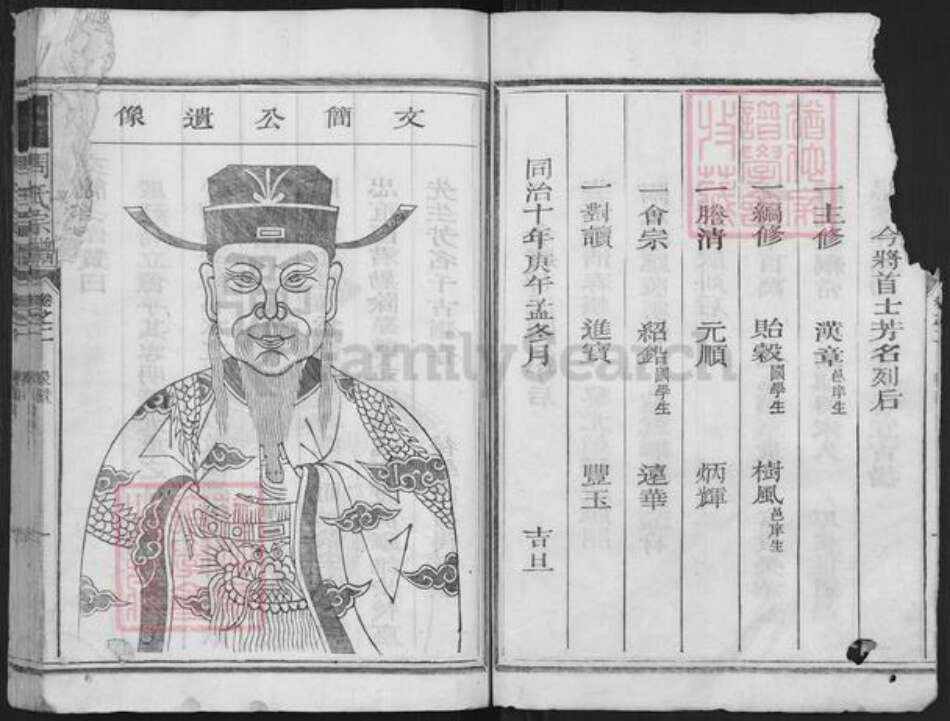 今將首士芳名列后
一主修 漢章邑庠生
一編修 貽穀國學生 樹風邑庠生
一謄清 元順 炳輝
一會宗 紹鉛國學生 遠華
一對讀 進寳 豐玉
同治十年庚午孟冬月 吉旦
文簡公遺像
周氏宗譜
卷之一
FamilySearch